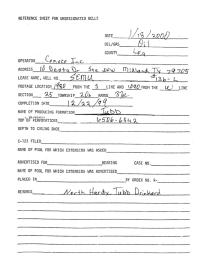 REFERENCE SHEET FOR UNDESIGNATED WELLS
DATE 1/13/2000
OIL/GAS Oil
COUNTY Lea
OPERATOR Conoco Inc
ADDRESS 10 Desta Dr Ste Midland Tx 79705
LEASE NAME, WELL NO. SEMU
POSTAGE LOCATION, FROM THE S LINE AND FROM THE W LINE
SECTION 25 TOWNSHIP 20s RANGE 37e
COMPLETION DATE 12/22/99
NAME OF PRODUCING FORMATION Tubb
TOP OF PERFORATIONS 6506-6642
DEPTH TO CASING SHOE
C-123 FILED
NAME OF POOL FOR WHICH EXTENSION WAS ASKED
ADVERTISED FOR HEARING CASE NO.
NAME OF POOL FOR WHICH EXTENSION WAS ADVERTISED
PLACED IN BY ORDER NO. R-
REMARKS North Hardy Tubb Drinkard